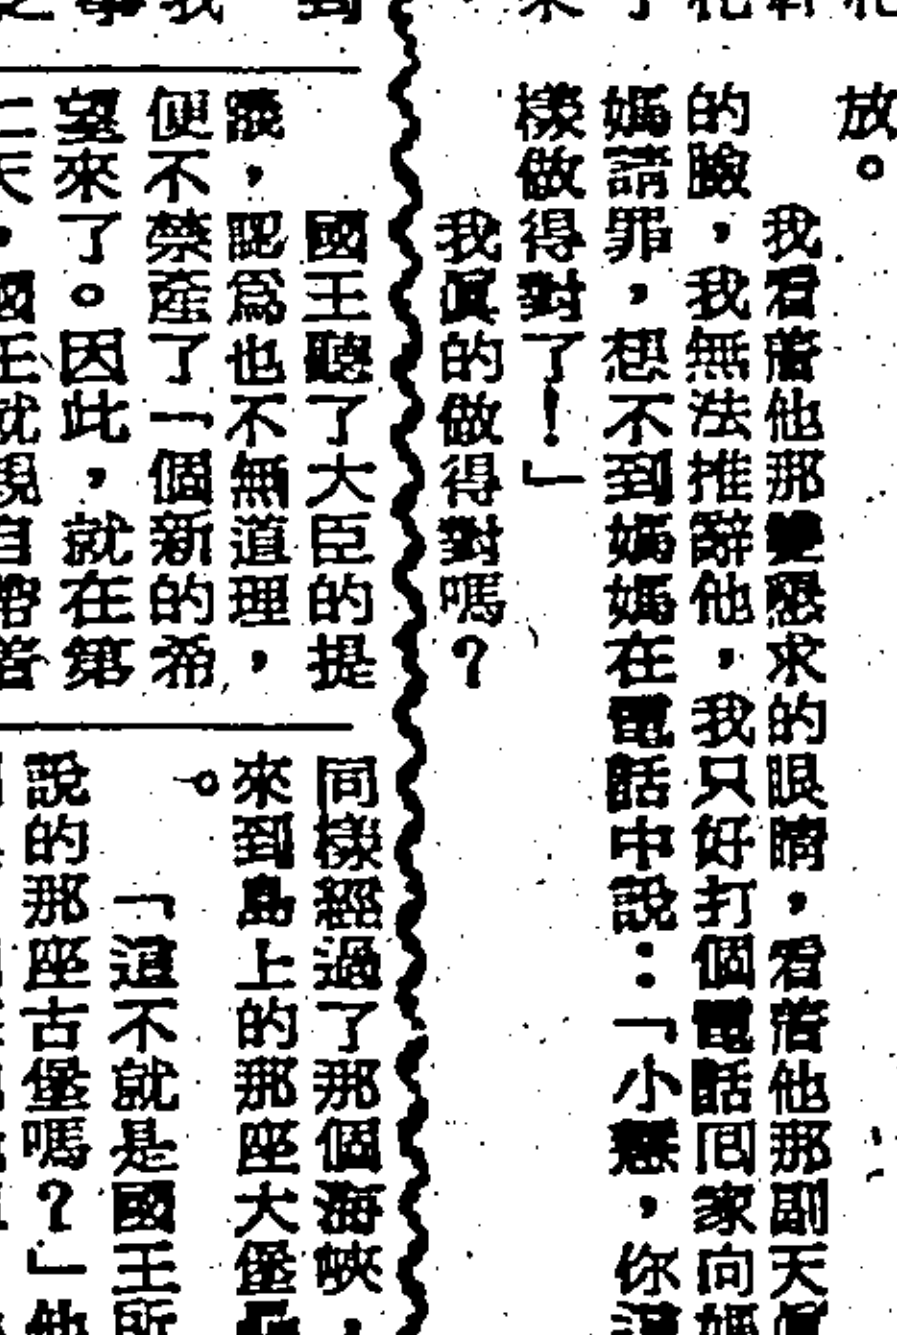 放。
我看著他那雙懇求的眼睛，看著他那副天眞
的臉，我無法推辭他，我只好打個電話回家向媽
媽請罪，想不到媽媽在電話中說：「小慧，你這
樣做得對了！」
我眞的做得對嗎？
國王聽了大臣的提
議，認爲也不無道理，
便不禁產了一個新的希
望來了。因此，就在第
二天，國王就親自帶著
同樣經過了那個海峽，
來到島上的那座大堡
。
「這不就是國王所
說的那座古堡嗎？」他